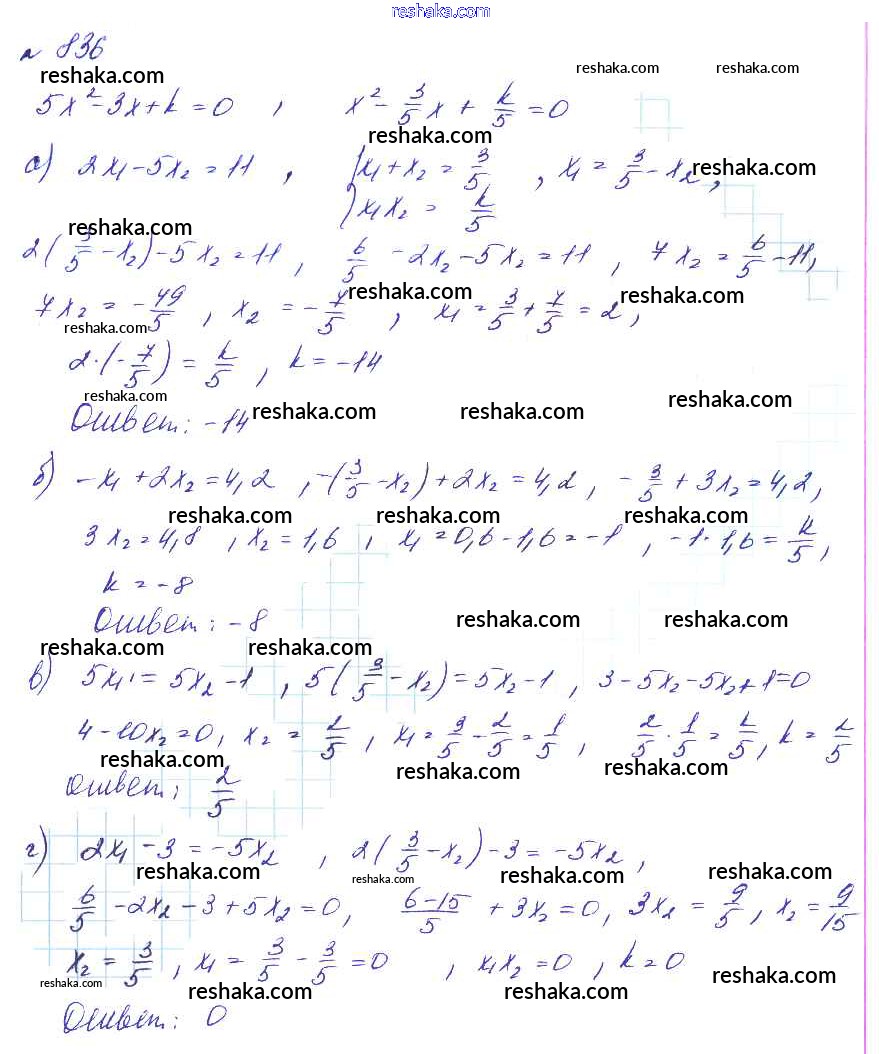 reshaka.com
№ 836
reshaka.com reshaka.com reshaka.com
5x² - 3x + k = 0 , x² - 3/5 x + k/5 = 0
reshaka.com
а) 2x₁ - 5x₂ = 11 , { x₁ + x₂ = 3/5 , x₁ = 3/5 - x₂ ,
reshaka.com
x₁x₂ = k/5
reshaka.com
2(3/5 - x₂) - 5x₂ = 11 , 6/5 - 2x₂ - 5x₂ = 11 , 7x₂ = 6/5 - 11,
reshaka.com reshaka.com
7x₂ = - 49/5 , x₂ = - 7/5 , x₁ = 3/5 + 7/5 = 2 ,
reshaka.com
2·(- 7/5) = k/5 , k = -14
reshaka.com reshaka.com reshaka.com reshaka.com
Ответ: -14
б) -x₁ + 2x₂ = 4,2 , -(3/5 - x₂) + 2x₂ = 4,2 , - 3/5 + 3x₂ = 4,2 ,
reshaka.com reshaka.com reshaka.com
3x₂ = 4,8 , x₂ = 1,6 , x₁ = 0,6 - 1,6 = -1 , -1·1,6 = k/5 ,
k = -8
Ответ: -8
reshaka.com reshaka.com
reshaka.com reshaka.com
в) 5x₁ = 5x₂ - 1 , 5(3/5 - x₂) = 5x₂ - 1 , 3 - 5x₂ - 5x₂ + 1 = 0
4 - 10x₂ = 0 , x₂ = 2/5 , x₁ = 3/5 - 2/5 = 1/5 , 2/5 · 1/5 = k/5 , k = 2/5
reshaka.com reshaka.com reshaka.com
Ответ: 2/5
г) 2x₁ - 3 = -5x₂ , 2(3/5 - x₂) - 3 = -5x₂ ,
reshaka.com reshaka.com reshaka.com reshaka.com
6/5 - 2x₂ - 3 + 5x₂ = 0 , (6-15)/5 + 3x₂ = 0 , 3x₂ = 9/5 , x₂ = 9/15
x₂ = 3/5 , x₁ = 3/5 - 3/5 = 0 , x₁x₂ = 0 , k = 0
reshaka.com reshaka.com reshaka.com reshaka.com
Ответ: 0